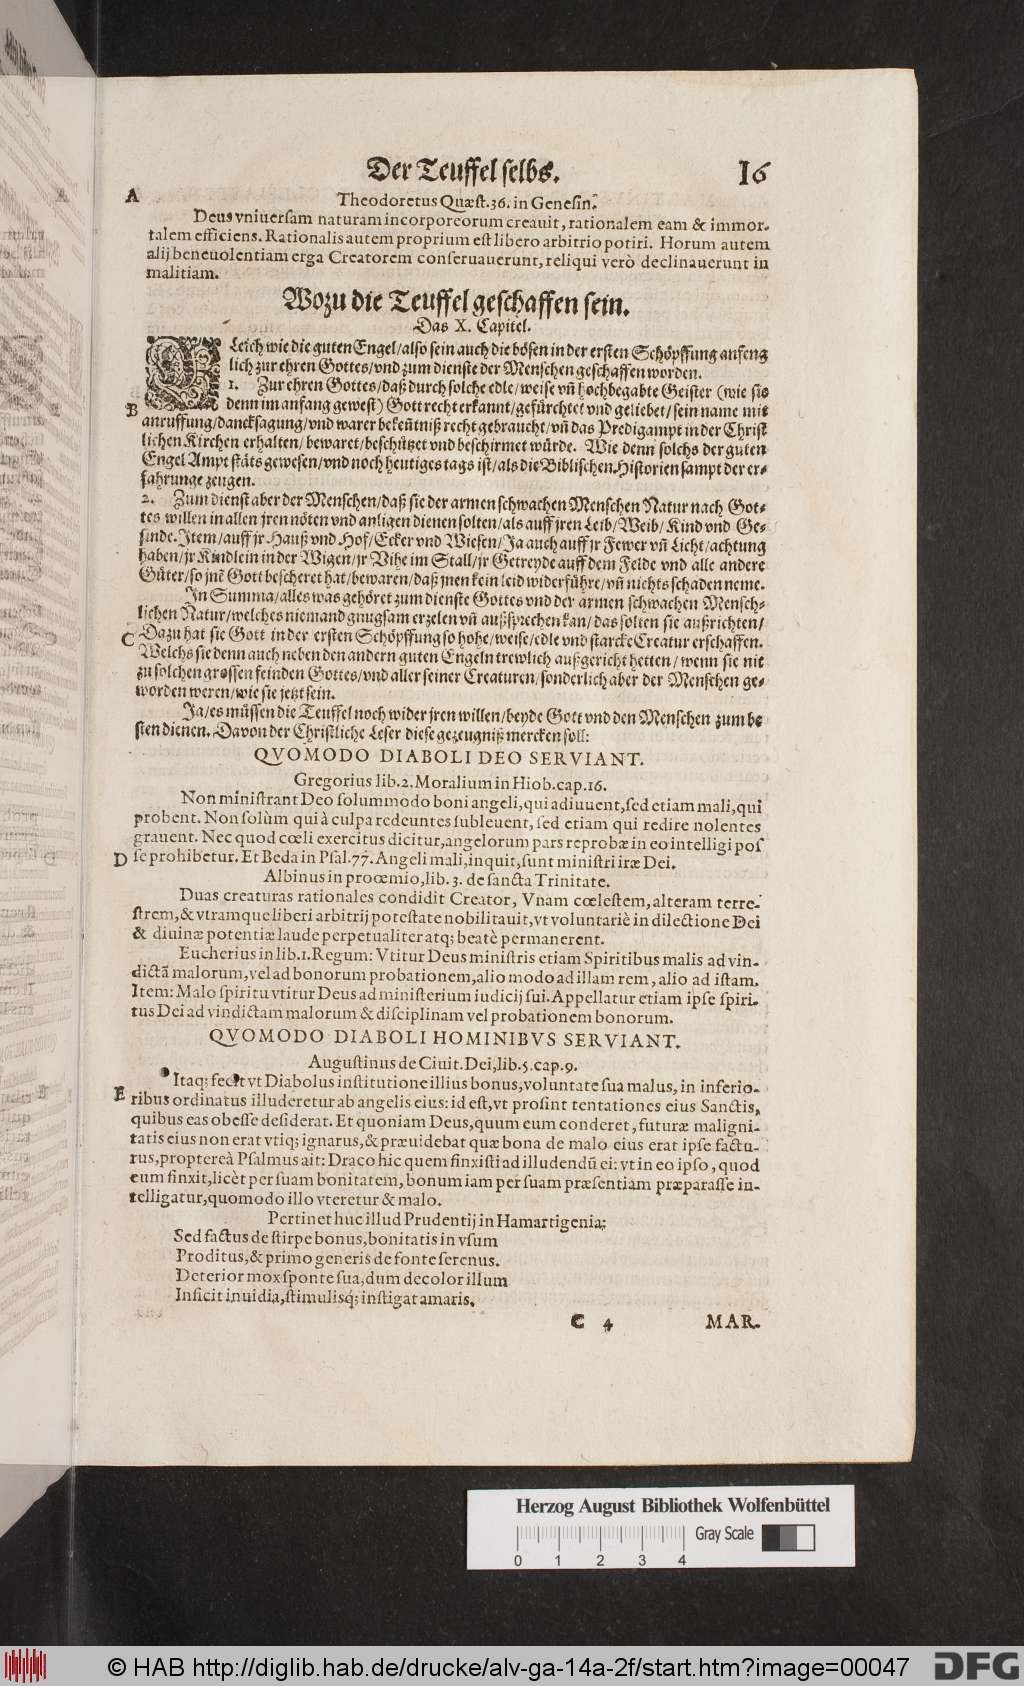 Der Teuffel selbs. 16
A
Theodoretus Quæst.36. in Genesin.
Deus vniuersam naturam incorporeorum creauit, rationalem eam & immor-
talem efficiens. Rationalis autem proprium est libero arbitrio potiri. Horum autem
alij beneuolentiam erga Creatorem conseruauerunt, reliqui verò declinauerunt in
malitiam.
Wozu die Teuffel geschaffen sein.
Das X. Capitel.
GLeich wie die guten Engel/also sein auch die bösen in der ersten Schöpffung anfeng
lich zur ehren Gottes/vnd zum dienste der Menschen geschaffen worden.
1. Zur ehren Gottes/daß durch solche edle/weise vñ hochbegabte Geister (wie sie
B denn im anfang gewest) Gott recht erkannt/gefürchtet vnd geliebet/sein name mit
anruffung/dancksagung/vnd warer bekeñtniß recht gebraucht/vñ das Predigampt in der Christ
lichen Kirchen erhalten/bewaret/beschützet vnd beschirmet würde. Wie denn solchs der guten
Engel Ampt stäts gewesen/vnd noch heutiges tags ist/als die Biblischen Historien sampt der er-
fahrunge zeugen.
2. Zum dienst aber der Menschen/daß sie der armen schwachen Menschen Natur nach Got-
tes willen in allen jren nöten vnd anligen dienen solten/als auff jren Leib/Weib/Kind vnd Ge-
sinde. Item/auff jr Hauß vnd Hof/Ecker vnd Wiesen/Ja auch auff jr Fewer vñ Licht/achtung
haben/jr Kindlein in der Wigen/jr Vihe im Stall/jr Getreyde auff dem Felde vnd alle andere
Güter/so jnē Gott bescheret hat/bewaren/daß jnen kein leid widerführe/vñ nichts schaden neme.
In Summa/alles was gehöret zum dienste Gottes vnd der armen schwachen Mensch-
lichen Natur/welches niemand gnugsam erzelen vñ außsprechen kan/das solten sie außrichten/
C Dazu hat sie Gott in der ersten Schöpffung so hohe/weise/edle vnd starcke Creatur erschaffen.
Welchs sie denn auch neben den andern guten Engeln trewlich außgericht hetten/wenn sie nit
zu solchen grossen feinden Gottes/vnd aller seiner Creaturen/sonderlich aber der Menschen ge-
worden weren/wie sie jetzt sein.
Ja/es müssen die Teuffel noch wider jren willen/beyde Gott vnd den Menschen zum be
sten dienen. Davon der Christliche Leser diese gezeugniß mercken soll:
QVOMODO DIABOLI DEO SERVIANT.
Gregorius lib.2. Moralium in Hiob.cap.16.
Non ministrant Deo solummodo boni angeli, qui adiuuent, sed etiam mali, qui
probent. Non solùm qui à culpa redeuntes subleuent, sed etiam qui redire nolentes
grauent. Nec quod cœli exercitus dicitur, angelorum pars reproba in eo intelligi pos
D se prohibetur. Et Beda in Psal.77. Angeli mali, inquit, sunt ministri iræ Dei.
Albinus in proœmio, lib. 3. de sancta Trinitate.
Duas creaturas rationales condidit Creator, Vnam cœlestem, alteram terre-
strem, & vtramque liberi arbitrij potestate nobilitauit, vt voluntariè in dilectione Dei
& diuinæ potentiæ laude perpetualiter atq; beatè permanerent.
Eucherius in lib.1. Regum: Vtitur Deus ministris etiam Spiritibus malis ad vin-
dictā malorum, vel ad bonorum probationem, alio modo ad illam rem, alio ad istam.
Item: Malo spiritu vtitur Deus ad ministerium iudicij sui. Appellatur etiam ipse spiri-
tus Dei ad vindictam malorum & disciplinam vel probationem bonorum.
QVOMODO DIABOLI HOMINIBVS SERVIANT.
Augustinus de Ciuit. Dei, lib.5.cap.9.
Itaq; fecit vt Diabolus institutione illius bonus, voluntate sua malus, in inferio-
E ribus ordinatus illuderetur ab angelis eius: id est, vt prosint tentationes eius Sanctis,
quibus eas obesse desiderat. Et quoniam Deus, quum eum conderet, futuræ maligni-
tatis eius non erat vtiq; ignarus, & præuidebat quæ bona de malo eius erat ipse factu-
rus, propterea Psalmus ait: Draco hic quem finxisti ad illudendū ei: vt in eo ipso, quod
eum finxit, licèt per suam bonitatem, bonum iam per suam præsentiam præparasse in-
telligatur, quomodo illo vteretur & malo.
Pertinet huc illud Prudentij in Hamartigenia:
Sed factus de stirpe bonus, bonitatis in vsum
Proditus, & primo generis de fonte serenus.
Deterior mox sponte sua, dum decolor illum
Inficit inuidia, stimulisq; instigat amaris.
C 4 MAR-
Herzog August Bibliothek Wolfenbüttel
Gray Scale
0 1 2 3 4
© HAB http://diglib.hab.de/drucke/alv-ga-14a-2f/start.htm?image=00047 DFG